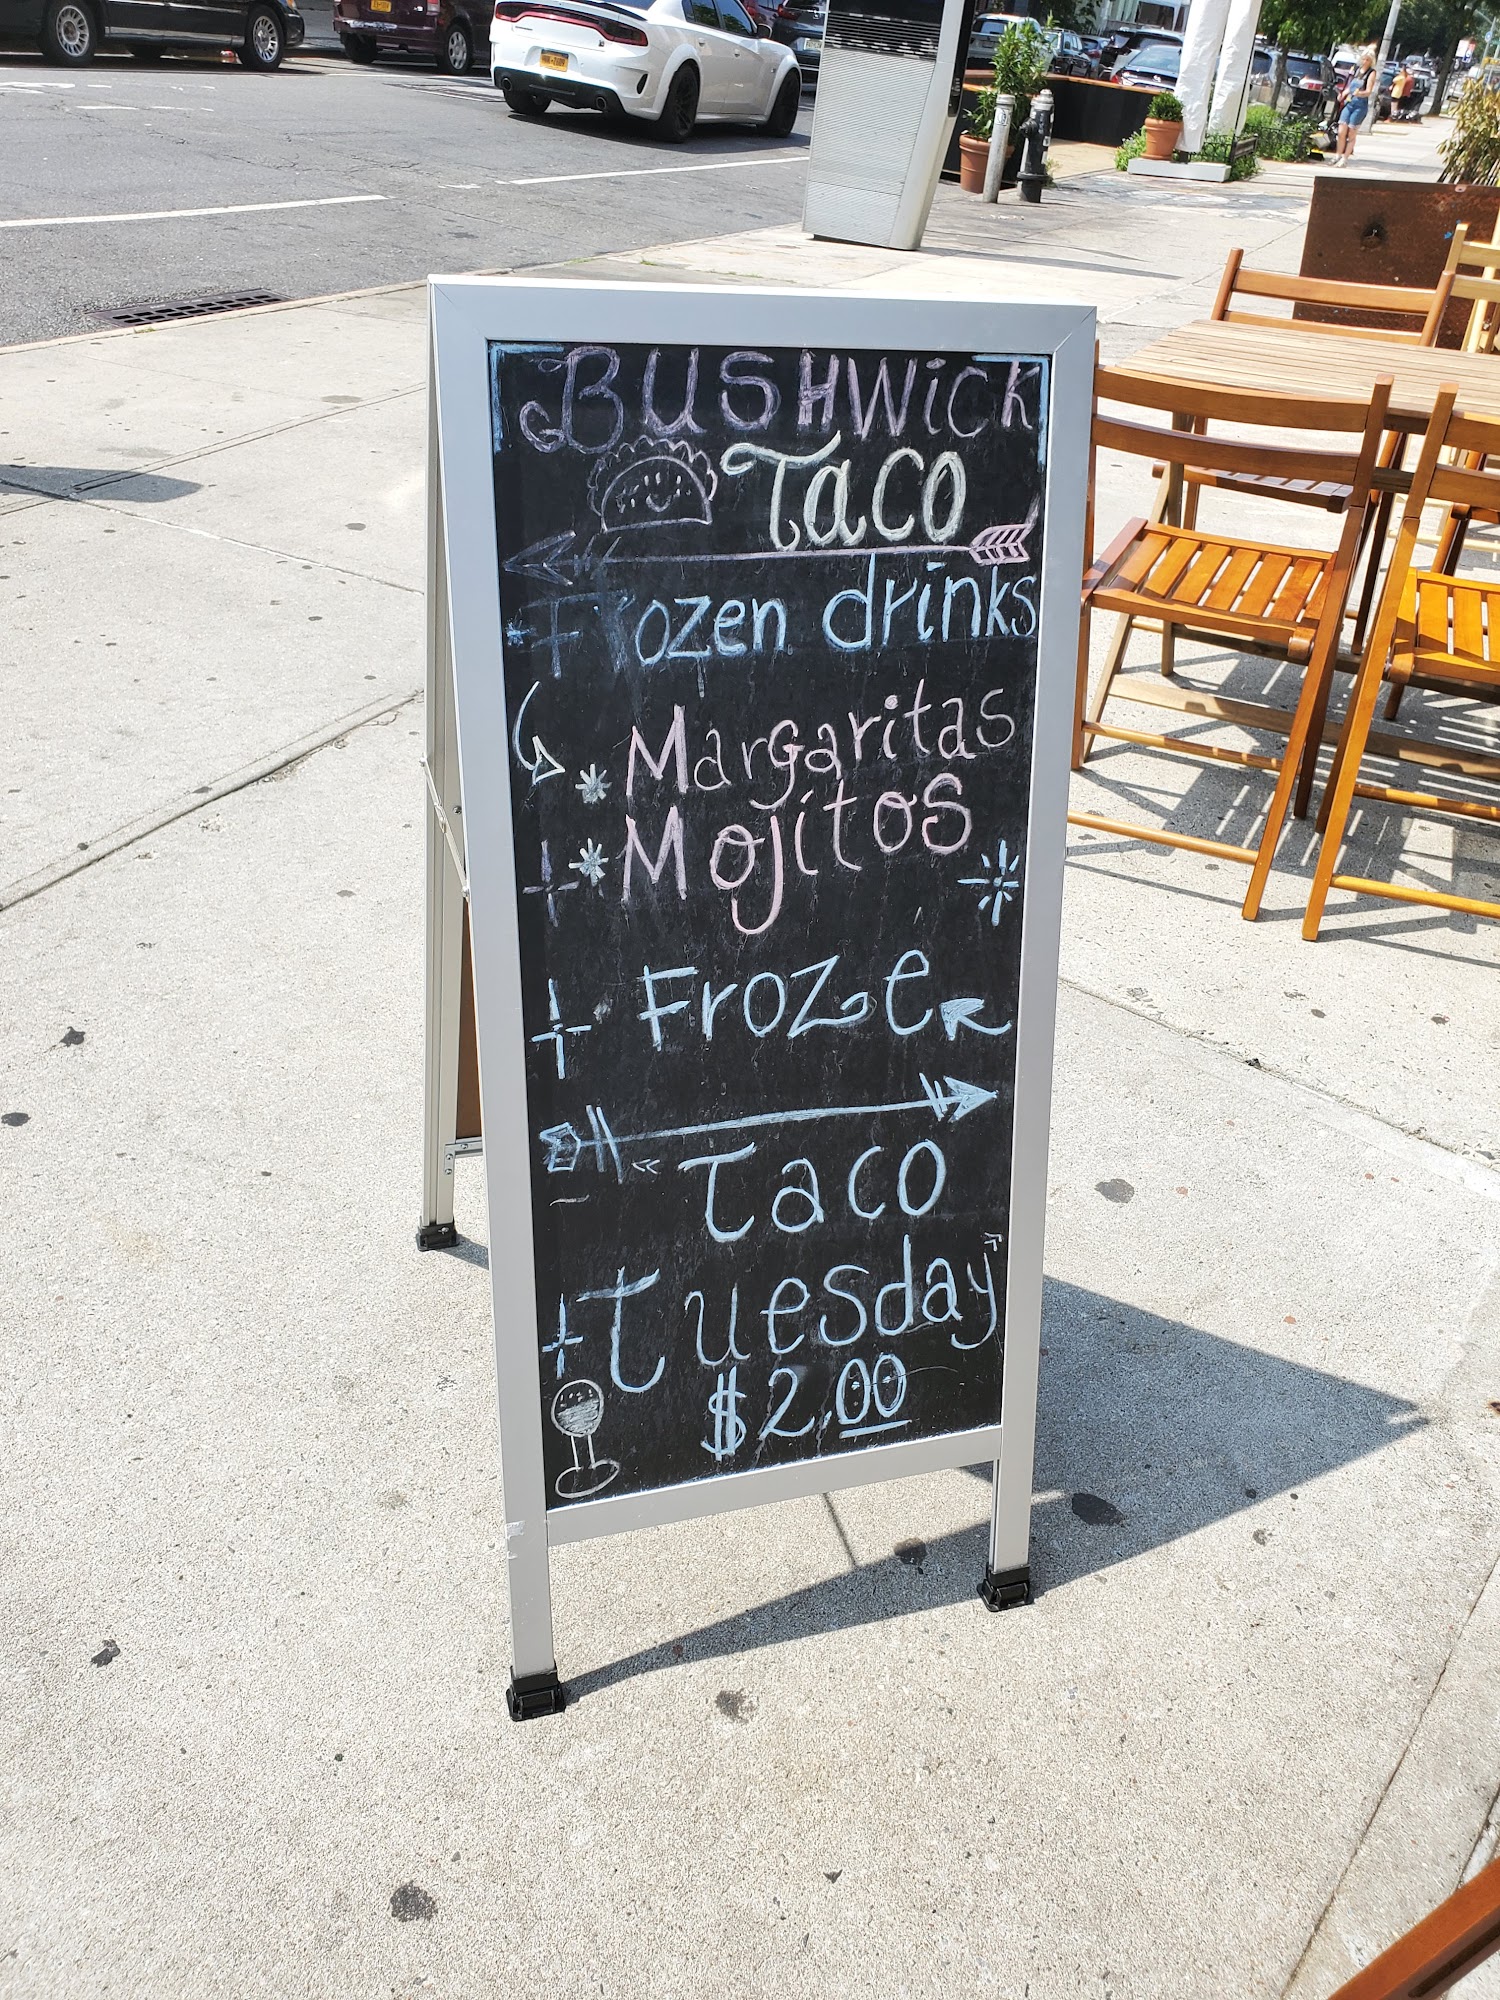 BUSHWicK
Taco
Frozen drinks
Margaritas
Mojitos
Froze
Taco
Tuesday
$2.00